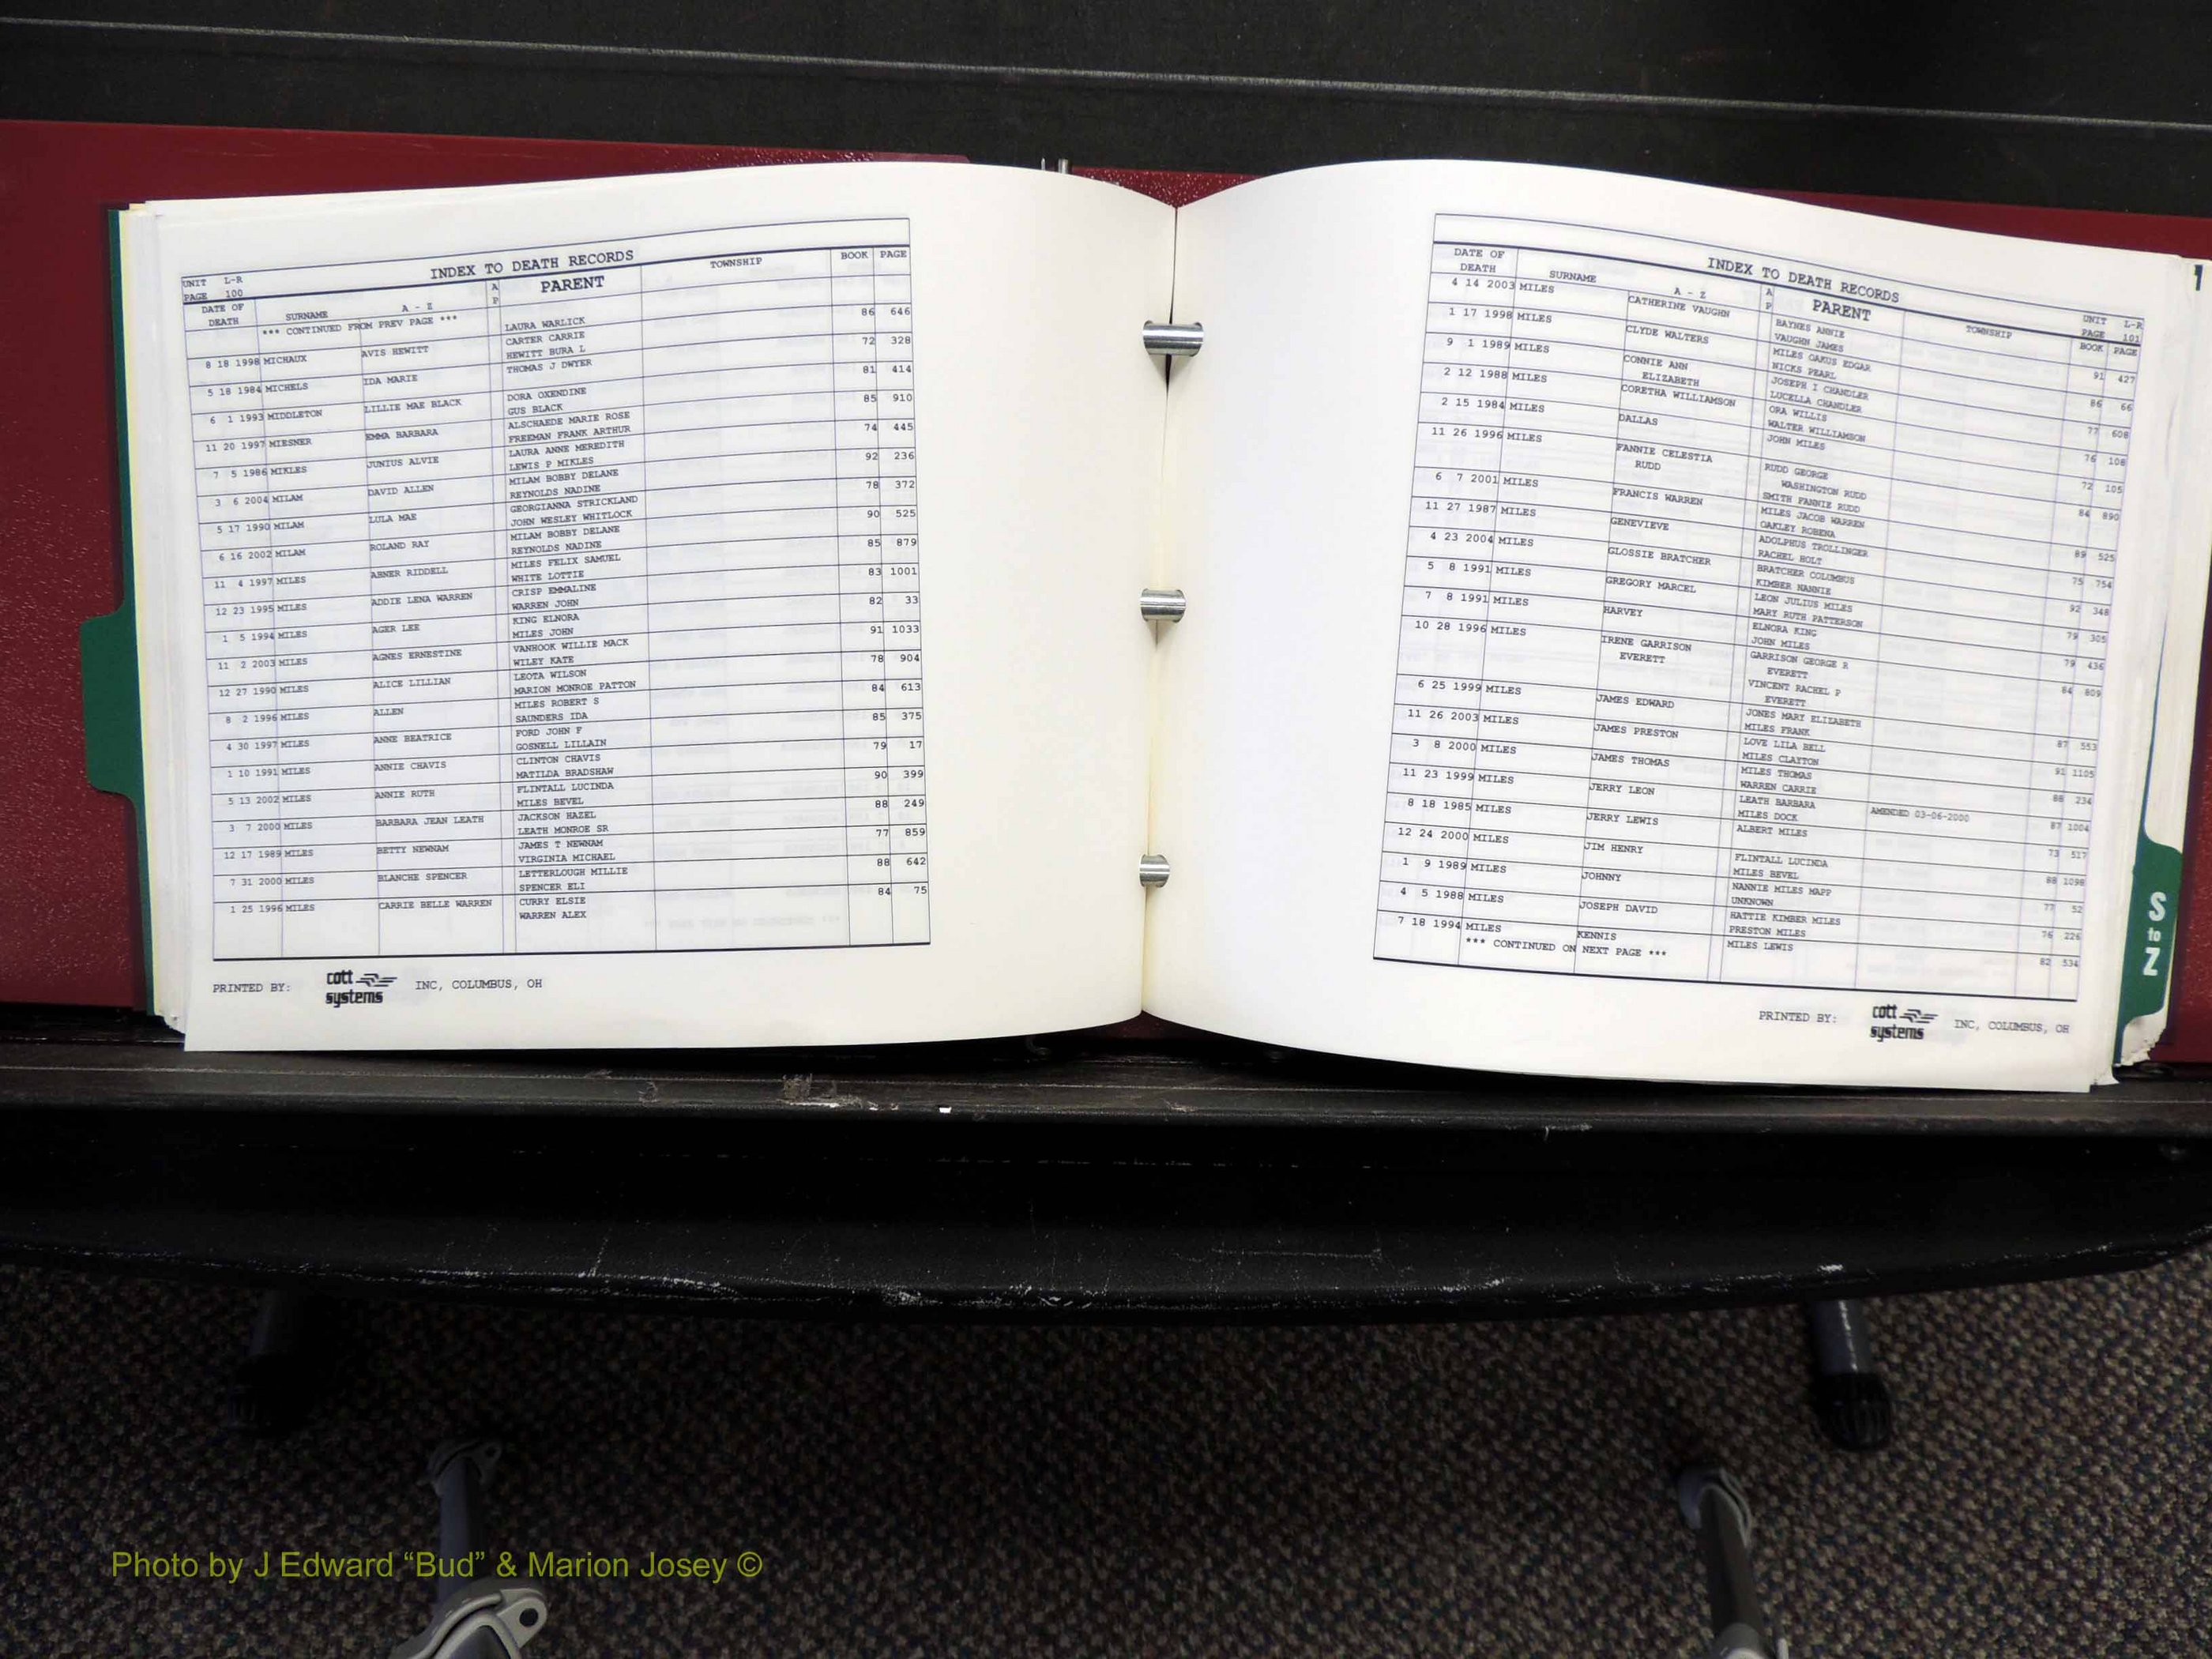 INDEX TO DEATH RECORDS
UNIT L-R
PAGE 100
DATE OF DEATH SURNAME A - Z A P PARENT TOWNSHIP BOOK PAGE
*** CONTINUED FROM PREV PAGE ***
LAURA WARLICK
8 18 1998 MICHAUX AVIS HEWITT CARTER CARRIE 86 646
HEWITT BURA L
5 18 1984 MICHELS IDA MARIE THOMAS J DWYER 72 328
6 1 1993 MIDDLETON LILLIE MAE BLACK DORA OXENDINE 81 414
GUS BLACK
11 20 1997 MIESNER EMMA BARBARA ALSCHAEDE MARIE ROSE 85 910
FREEMAN FRANK ARTHUR
7 5 1986 MIKLES JUNIUS ALVIE LAURA ANNE MEREDITH 74 445
LEWIS P MIKLES
3 6 2004 MILAM DAVID ALLEN MILAM BOBBY DELANE 92 236
REYNOLDS NADINE
5 17 1990 MILAM LULA MAE GEORGIANNA STRICKLAND 78 372
JOHN WESLEY WHITLOCK
6 16 2002 MILAM ROLAND RAY MILAM BOBBY DELANE 90 525
REYNOLDS NADINE
11 4 1997 MILES ABNER RIDDELL MILES FELIX SAMUEL 85 879
WHITE LOTTIE
12 23 1995 MILES ADDIE LENA WARREN CRISP EMMALINE 83 1001
WARREN JOHN
1 5 1994 MILES AGER LEE KING ELNORA 82 33
MILES JOHN
11 2 2003 MILES AGNES ERNESTINE VANHOOK WILLIE MACK 91 1033
WILEY KATE
12 27 1990 MILES ALICE LILLIAN LEOTA WILSON 78 904
MARION MONROE PATTON
8 2 1996 MILES ALLEN MILES ROBERT S 84 613
SAUNDERS IDA
4 30 1997 MILES ANNE BEATRICE FORD JOHN F 85 375
GOSNELL LILLAIN
1 10 1991 MILES ANNIE CHAVIS CLINTON CHAVIS 79 17
MATILDA BRADSHAW
5 13 2002 MILES ANNIE RUTH FLINTALL LUCINDA 90 399
MILES BEVEL
3 7 2000 MILES BARBARA JEAN LEATH JACKSON HAZEL 88 249
LEATH MONROE SR
12 17 1989 MILES BETTY NEWNAM JAMES T NEWNAM 77 859
VIRGINIA MICHAEL
7 31 2000 MILES BLANCHE SPENCER LETTERLOUGH MILLIE 88 642
SPENCER ELI
1 25 1996 MILES CARRIE BELLE WARREN CURRY ELSIE 84 75
WARREN ALEX
PRINTED BY: cott systems INC, COLUMBUS, OH
INDEX TO DEATH RECORDS
UNIT L-R
PAGE 101
DATE OF DEATH SURNAME A - Z A P PARENT TOWNSHIP BOOK PAGE
4 14 2003 MILES CATHERINE VAUGHN BAYNES ANNIE 91 427
VAUGHN JAMES
1 17 1998 MILES CLYDE WALTERS MILES OAKUS EDGAR 86 66
NICKS PEARL
9 1 1989 MILES CONNIE ANN JOSEPH I CHANDLER 77 608
ELIZABETH LUCELLA CHANDLER
2 12 1988 MILES CORETHA WILLIAMSON ORA WILLIS 76 108
WALTER WILLIAMSON
2 15 1984 MILES DALLAS JOHN MILES 72 105
11 26 1996 MILES FANNIE CELESTIA RUDD GEORGE 84 890
RUDD WASHINGTON RUDD
SMITH FANNIE RUDD
6 7 2001 MILES FRANCIS WARREN MILES JACOB WARREN 89 525
OAKLEY ROBENA
11 27 1987 MILES GENEVIEVE ADOLPHUS TROLLINGER 75 754
RACHEL BOLT
4 23 2004 MILES GLOSSIE BRATCHER BRATCHER COLUMBUS 92 348
KIMBER NANNIE
5 8 1991 MILES GREGORY MARCEL LEON JULIUS MILES 79 305
MARY RUTH PATTERSON
7 8 1991 MILES HARVEY ELNORA KING 79 436
JOHN MILES
10 28 1996 MILES IRENE GARRISON GARRISON GEORGE R 84 809
EVERETT EVERETT
VINCENT RACHEL P
EVERETT
6 25 1999 MILES JAMES EDWARD JONES MARY ELIZABETH 87 553
MILES FRANK
11 26 2003 MILES JAMES PRESTON LOVE LILA BELL 91 1105
MILES CLAYTON
3 8 2000 MILES JAMES THOMAS MILES THOMAS 88 234
WARREN CARRIE
11 23 1999 MILES JERRY LEON LEATH BARBARA AMENDED 03-06-2000 87 1004
MILES DOCK
8 18 1985 MILES JERRY LEWIS ALBERT MILES 73 517
12 24 2000 MILES JIM HENRY FLINTALL LUCINDA 88 1098
MILES BEVEL
1 9 1989 MILES JOHNNY NANNIE MILES MAPP 77 52
UNKNOWN
4 5 1988 MILES JOSEPH DAVID HATTIE KIMBER MILES 76 226
PRESTON MILES
7 18 1994 MILES KENNIS MILES LEWIS 82 534
*** CONTINUED ON NEXT PAGE ***
PRINTED BY: cott systems INC, COLUMBUS, OH
1
S
to
Z
Photo by J Edward “Bud” & Marion Josey ©